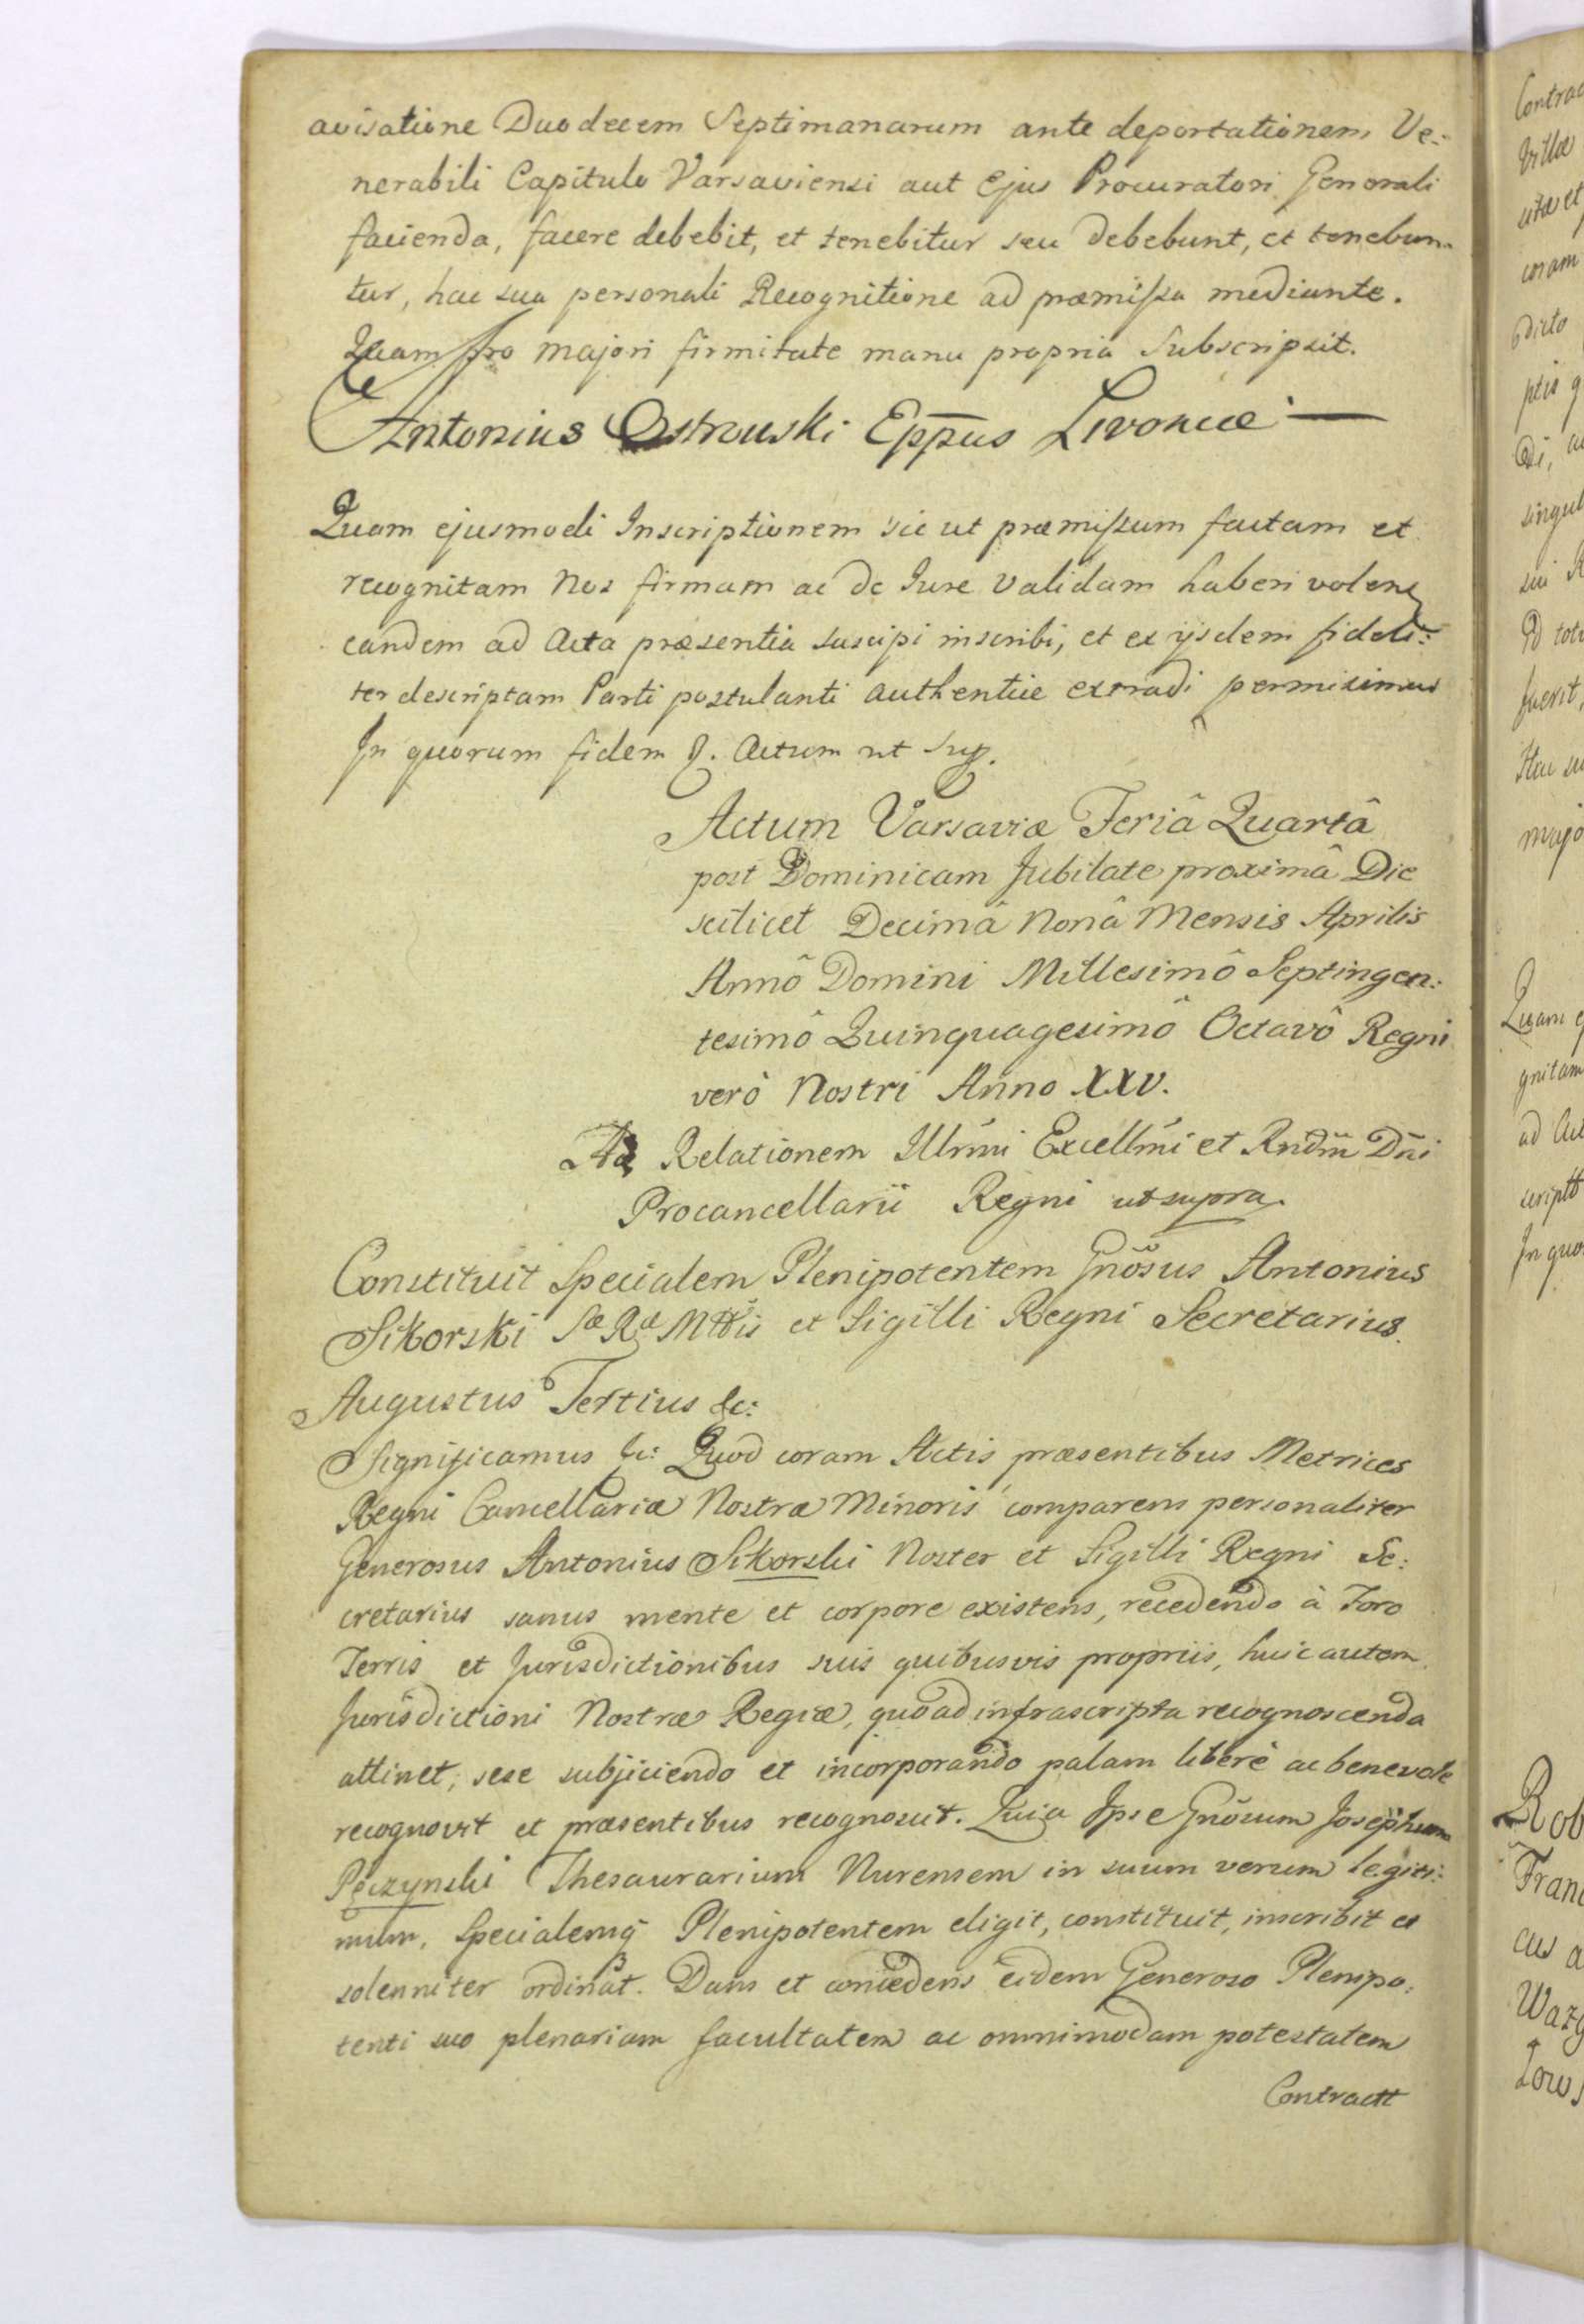 avisatione Duodecem Septimanarum ante deportationem Ve:
nerabili Capitulo Varsaviensi aut Ejus Procuratori Generali
facienda, facere debebit, et tenebitur seu debebunt, et tenebun:
tur, hac sua personali Recognitione ad præmissa mediante.
Quam pro majori firmitate manu propria Subscripsit.
Antonius Ostrowski Eppus Livoniæ
Quam ejusmodi Inscriptionem sic ut præmissum factam et
recognitam Nos firmam ac de Iure validam haberi volens
eandem ad Acta præsentia suscipi inscribi, et ex ijsdem fideli:
ter descriptam Parti postulanti authentice extradi permisimus
In quorum fidem &. Actum ut sup.
Actum Varsaviæ Feriâ Quartâ
post Dominicam Jubilate proximâ Die
scilicet Decimâ Nonâ Mensis Aprilis
Annô Domini Millesimô Septingen:
tesimô Quinquagesimô Octavô Regni
verò Nostri Anno XXV.
Ad Relationem Illmi Excellmi et Rndm Dni
Procancellarii Regni ut supra.
Constituit Specialem Plenipotentem Gnosus Antonius
Sikorski Sæ Ræ Mttis et Sigilli Regni Secretarius.
Augustus Tertius &c:
Significamus &c: Quod coram Actis præsentibus Metrices
Regni Cancellariæ Nostræ Minoris comparens personaliter
Generosus Antonius Sikorski Noster et Sigilli Regni Se:
cretarius sanus mente et corpore existens, recedendo à Foro
Terris et Jurisdictionibus suis quibusvis propriis, huic autem
Jurisdictioni Nostræ Regiæ, quo ad infrascripta recognoscenda
attinet, sese subjiciendo et incorporando palam liberè ac benevole
recognovit et præsentibus recognoscit. Quia Ipse Gnosum Josephum
Pęczynski Thesaurarium Nurensem in suum verum legiti:
mum, Specialemq Plenipotentem eligit, constituit, inscribit et
solenniter ordinat. Dans et concedens eidem Generoso Plenipo:
tenti suo plenariam facultatem ac omnimodam potestatem
Contractt